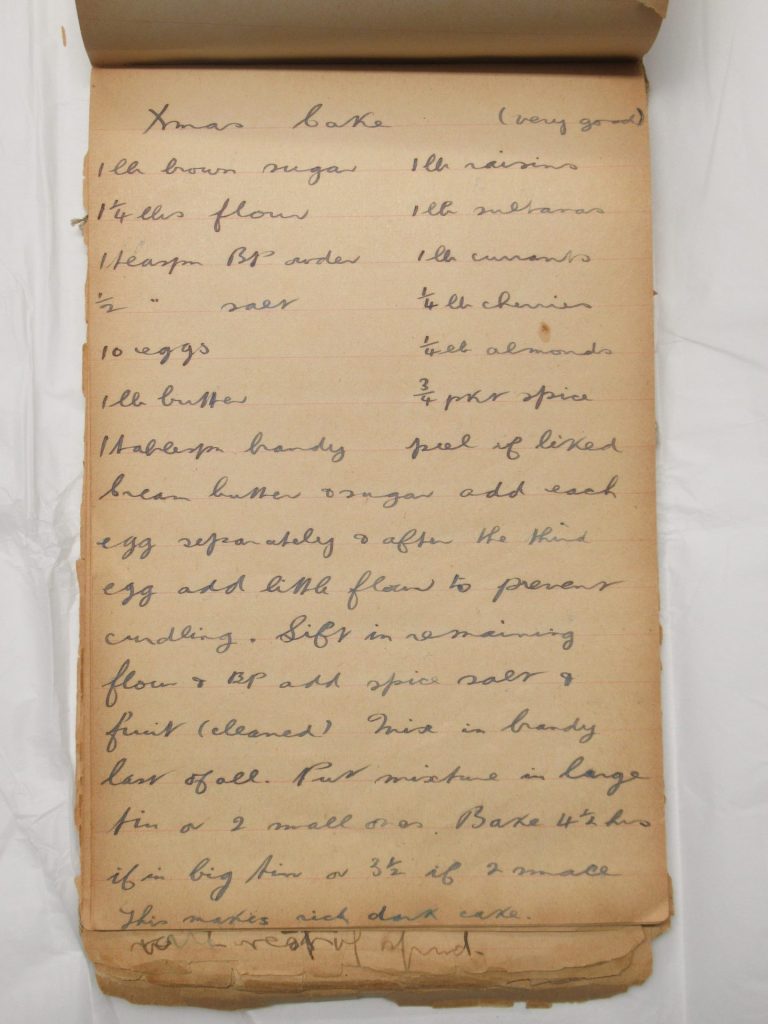 Xmas Cake (very good)
1 lb brown sugar 1 lb raisins
1 1/4 lbs flour 1 lb sultanas
1 teaspn BP owder 1 lb currants
1/2 " salt 1/4 lb cherries
10 eggs 1/4 lb almonds
1 lb butter 3/4 pkt spice
1 tablespn brandy peel if liked
Cream butter & sugar add each
egg separately & after the third
egg add little flour to prevent
curdling. Sift in remaining
flour & BP add spice salt &
fruit (cleaned) Mix in brandy
last of all. Put mixture in large
tin or 2 small ones. Bake 4 1/2 hrs
if in big tin or 3 1/2 if 2 small
This makes rich dark cake.
rest of